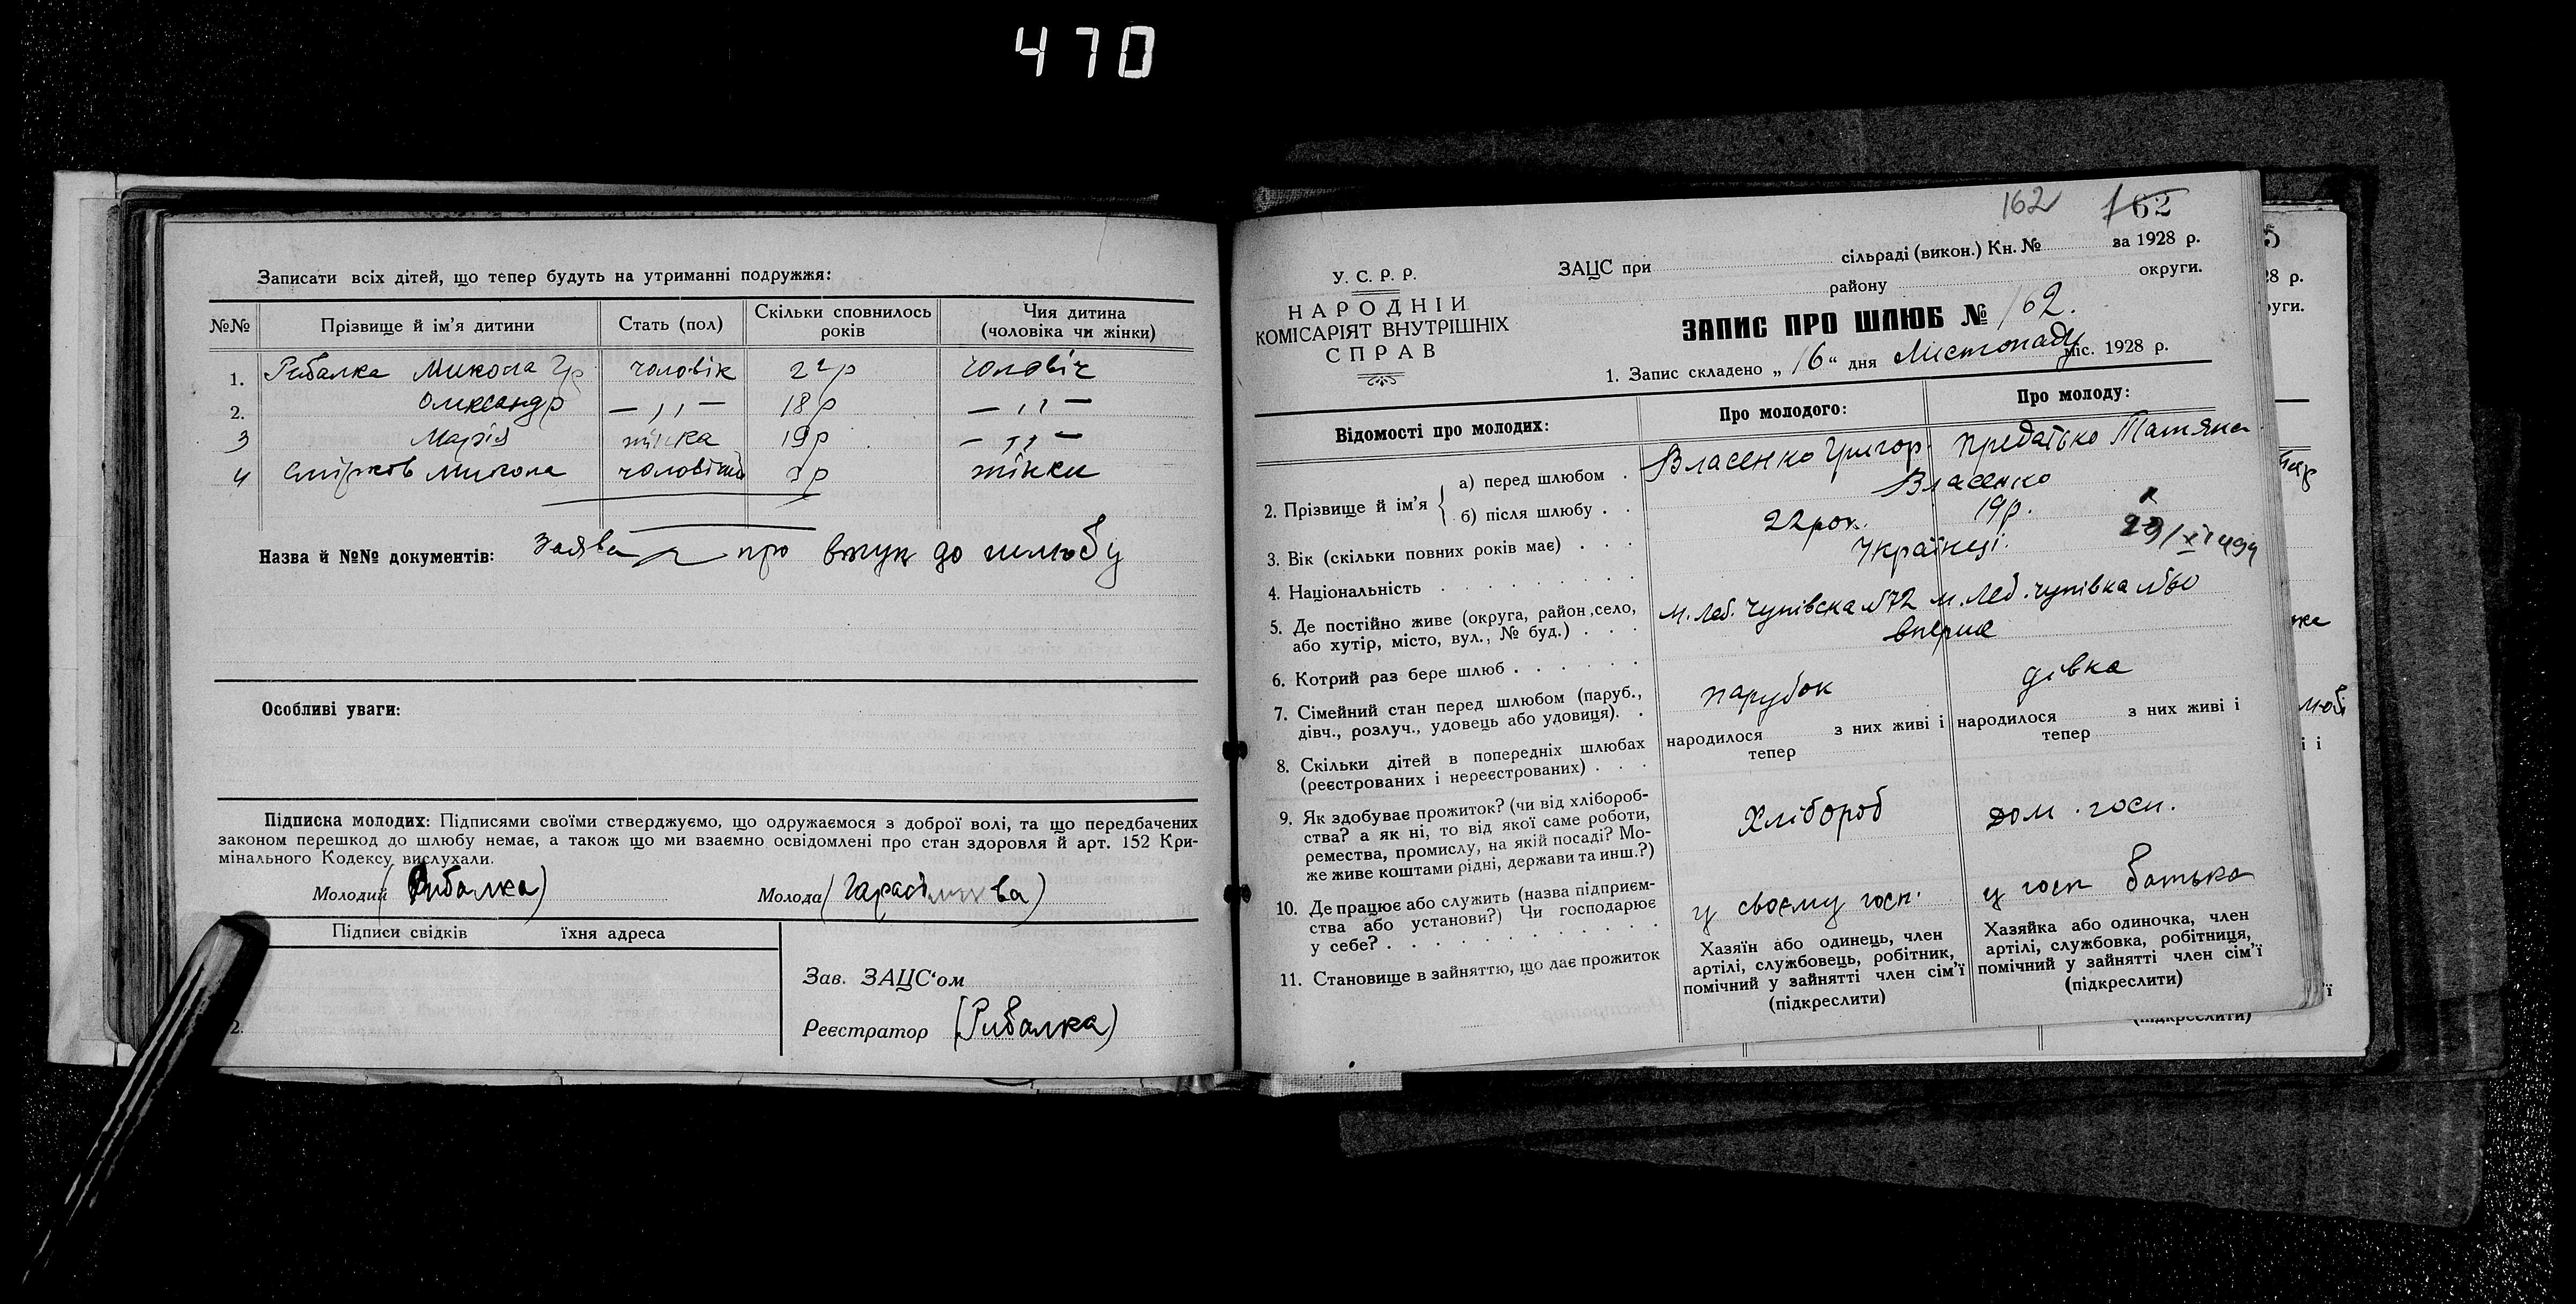 470
Записати всіх дітей, що тепер будуть на утриманні подружжя:
№№ Прізвище й ім'я дитини Стать (пол) Скільки сповнилось років Чия дитина (чоловіка чи жінки)
1. Рибалка Микола Гр чоловік 22р чоловіч
2. Олександр — ,, — 18р — ,, —
3 Марія жінка 19р — ,, —
4 Смірнов Микола 9р жінки
Назва й №№ документів: Заява про вступ до шлюбу
Особливі уваги:
Підписка молодих: Підписями своїми стверджуємо, що одружаємося з доброї волі, та що передбачених
законом перешкод до шлюбу немає, а також що ми взаємно освідомлені про стан здоровля й арт. 152 Кри-
мінального Кодексу вислухали.
Молодий (Рибалка) Молода (Гарасімова)
Підписи свідків їхня адреса
2.
Зав. ЗАЦС'ом
Реєстратор (Рибалка)
162 162
У. С. Р. Р.
НАРОДНІЙ
КОМІСАРІЯТ ВНУТРІШНІХ
СПРАВ
ЗАЦС при сільраді (викон.) Кн. № за 1928 р.
району округи.
ЗАПИС ПРО ШЛЮБ № 162.
1. Запис складено „ 16 “ дня Листопаду міс. 1928 р.
Відомості про молодих: Про молодого: Про молоду:
2. Прізвище й ім'я { а) перед шлюбом . Власенко Григор. Предатько Татяна
б) після шлюбу . . Власенко
3. Вік (скільки повних років має) . . . 22 рок. 19р.
4. Національність . . . . . . . . Українці.
5. Де постійно живе (округа, район, село,
або хутір, місто, вул., № буд.) . . . м. Леб. Чупівска №72 м. Леб. Чупівка №60
6. Котрий раз бере шлюб . . . . . . вперше
7. Сімейний стан перед шлюбом (паруб.,
дівч., розлуч., удовець або удовиця). . парубок дівка
8. Скільки дітей в попередніх шлюбах
(реєстрованих і нереєстрованих) . . . народилося з них живі і тепер народилося з них живі і тепер
9. Як здобуває прожиток? (чи від хлібороб-
ства? а як ні, то від якої саме роботи,
ремества, промислу, на якій посаді? Мо-
же живе коштами рідні, держави та инш.?) Хлібороб дом. госп.
10. Де працює або служить (назва підприєм-
ства або установи?) Чи господарює
у себе? . . . . . . . . . . . . у своєму госп. у госп батька
11. Становище в зайняттю, що дає прожиток
Хазяїн або одинець, член
артілі, службовець, робітник,
помічний у зайнятті член сім'ї
(підкреслити)
Хазяйка або одиночка, член
артілі, службовка, робітниця,
помічний у зайнятті член сім'ї
(підкреслити)
(підкреслити)